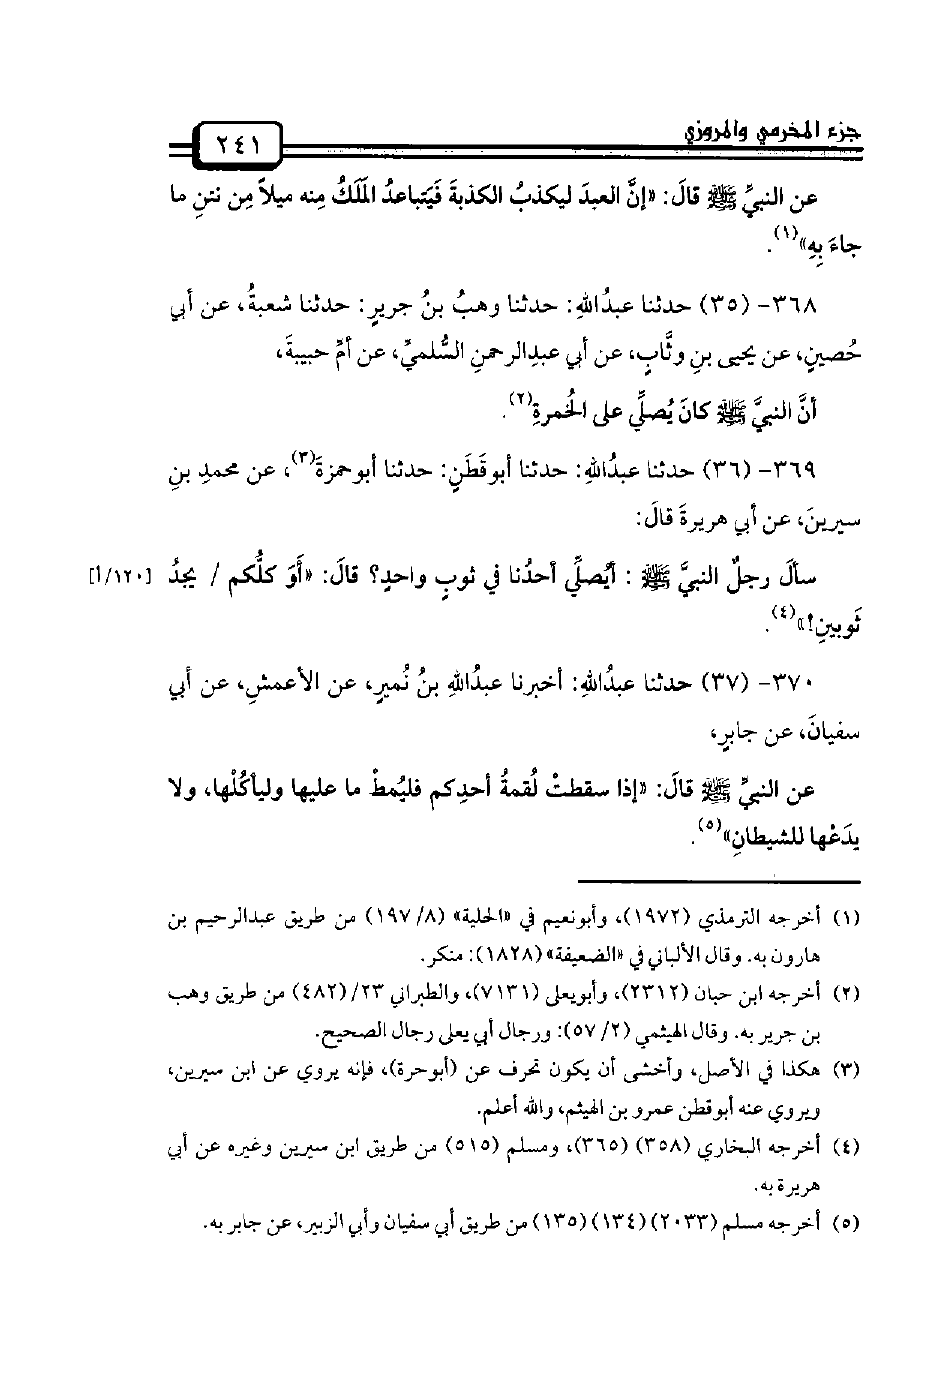 جزء المخرمي والمروزي
٢٤١
عن النبيِّ ﷺ قالَ: «إنَّ العبدَ ليكذبُ الكذبةَ فَيَتباعدُ المَلَكُ مِنه ميلاً مِن نتنِ ما
جاءَ بِهِ»(١).
٣٦٨- (٣٥) حدثنا عبدُاللهِ: حدثنا وهبُ بنُ جريرٍ: حدثنا شعبةُ، عن أبي
حُصينٍ، عن يحيى بنِ وثَّابٍ، عن أبي عبدِالرحمنِ السُّلميِّ، عن أمِّ حبيبةَ،
أنَّ النبيَّ ﷺ كانَ يُصلِّي على الخُمرةِ(٢).
٣٦٩- (٣٦) حدثنا عبدُاللهِ: حدثنا أبوقَطَنٍ: حدثنا أبوحمزةَ(٣)، عن محمدِ بنِ
سيرينَ، عن أبي هريرةَ قالَ:
سألَ رجلٌ النبيَّ ﷺ : أيُصلِّي أحدُنا في ثوبٍ واحدٍ؟ قالَ: «أَوَ كلُّكم / يجدُ [١٢٠/أ]
ثَوبينِ!»(٤).
٣٧٠- (٣٧) حدثنا عبدُاللهِ: أخبرنا عبدُاللهِ بنُ نُميرٍ، عن الأعمشِ، عن أبي
سفيانَ، عن جابرٍ،
عن النبيِّ ﷺ قالَ: «إذا سقطتْ لُقمةُ أحدِكم فليُمطْ ما عليها وليأكُلْها، ولا
يدَعْها للشيطانِ»(٥).
(١) أخرجه الترمذي (١٩٧٢)، وأبونعيم في «الحلية» (٨/ ١٩٧) من طريق عبدالرحيم بن
هارون به. وقال الألباني في «الضعيفة» (١٨٢٨): منكر.
(٢) أخرجه ابن حبان (٢٣١٢)، وأبويعلى (٧١٣١)، والطبراني ٢٣/ (٤٨٢) من طريق وهب
بن جرير به. وقال الهيثمي (٢/ ٥٧): ورجال أبي يعلى رجال الصحيح.
(٣) هكذا في الأصل، وأخشى أن يكون تحرف عن (أبوحرة)، فإنه يروي عن ابن سيرين،
ويروي عنه أبوقطن عمرو بن الهيثم، والله أعلم.
(٤) أخرجه البخاري (٣٥٨) (٣٦٥)، ومسلم (٥١٥) من طريق ابن سيرين وغيره عن أبي
هريرة به.
(٥) أخرجه مسلم (٢٠٣٣) (١٣٤) (١٣٥) من طريق أبي سفيان وأبي الزبير، عن جابر به.